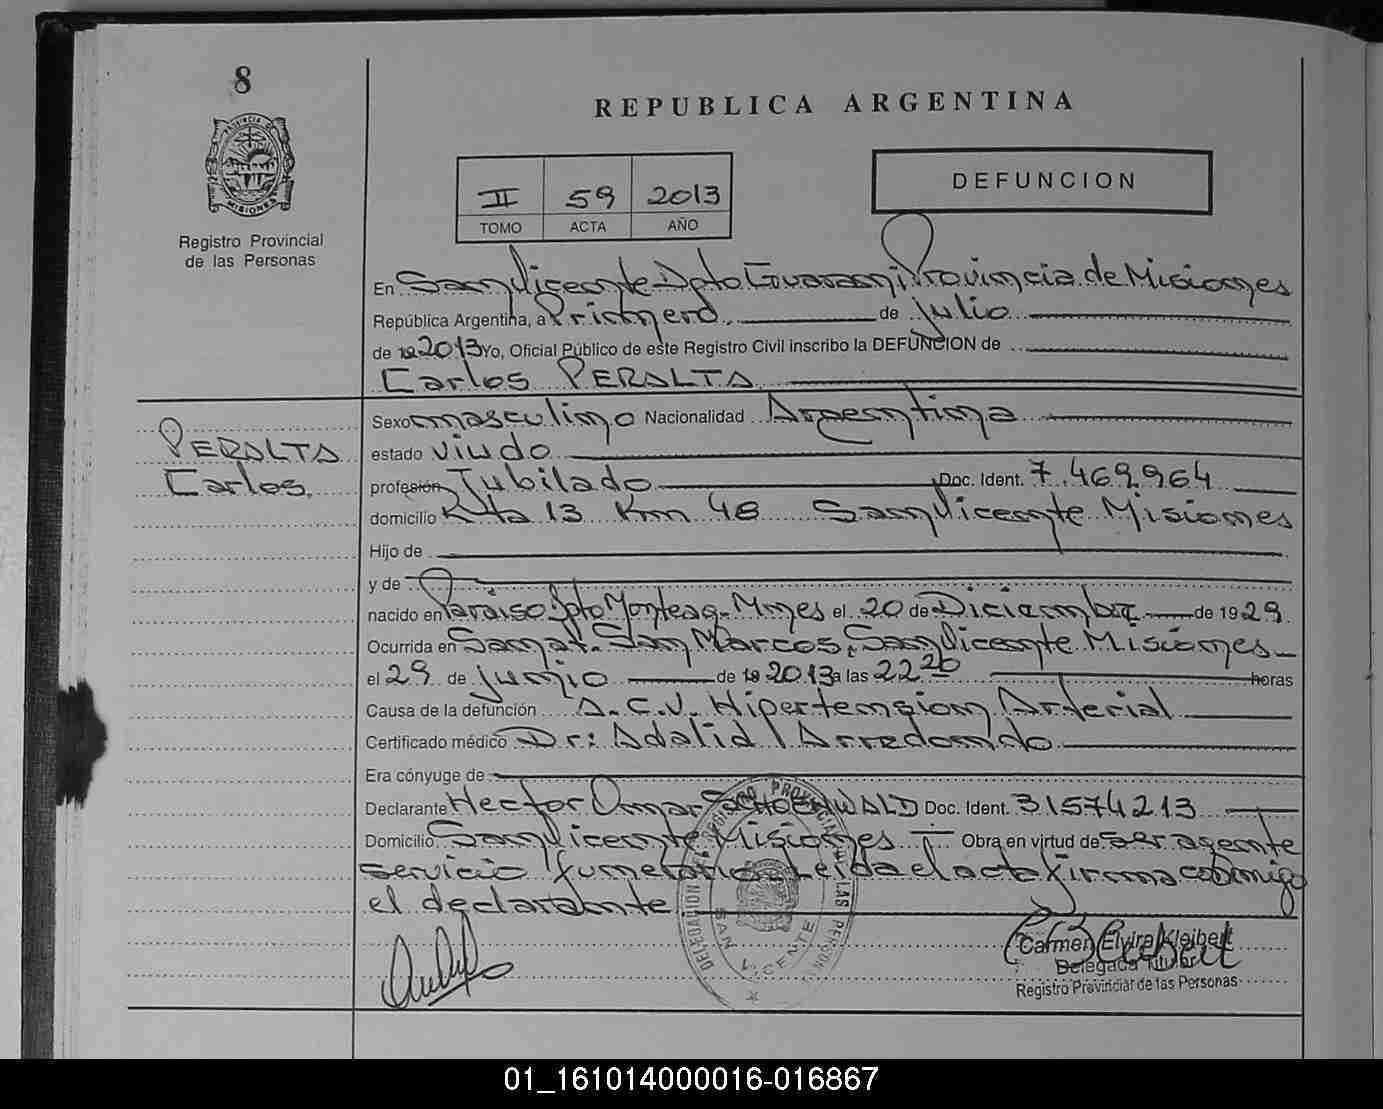 8
REPUBLICA ARGENTINA
PROVINCIA DE
MISIONES
Registro Provincial
de las Personas
II 59 2013
TOMO ACTA AÑO
DEFUNCION
En San Vicente Dpto Guarani Provincia de Misiones
República Argentina, a Primero de julio
de 19 2013 Yo, Oficial Público de este Registro Civil inscribo la DEFUNCION de
Carlos PERALTA
PERALTA
Carlos
Sexo masculino Nacionalidad Argentina
estado viudo
profesión Jubilado Doc. Ident. 7.469.964
domicilio Ruta 13 Km 48 San Vicente Misiones
Hijo de
y de
nacido en Paraiso Dpto Monteag-Mnes el 20 de Diciembre de 1929
Ocurrida en Sanat. San Marcos, San Vicente Misiones
el 29 de junio de 19 2013 a las 22 20 horas
Causa de la defunción A.C.V. Hipertension Arterial
Certificado médico Dr: Adalid Arredondo
Era cónyuge de
Declarante Hector Omar SCHOENWALD Doc. Ident. 31574213
Domicilio San Vicente Misiones Obra en virtud de ser agente
servicio funerario. Leida el acta firma conmigo
el declarante
DELEGACION DEL REGISTRO PROVINCIAL DE LAS PERSONAS
SAN VICENTE
Carmen Elvira Kleibert
Delegada Titular
Registro Provincial de las Personas
01_161014000016-016867